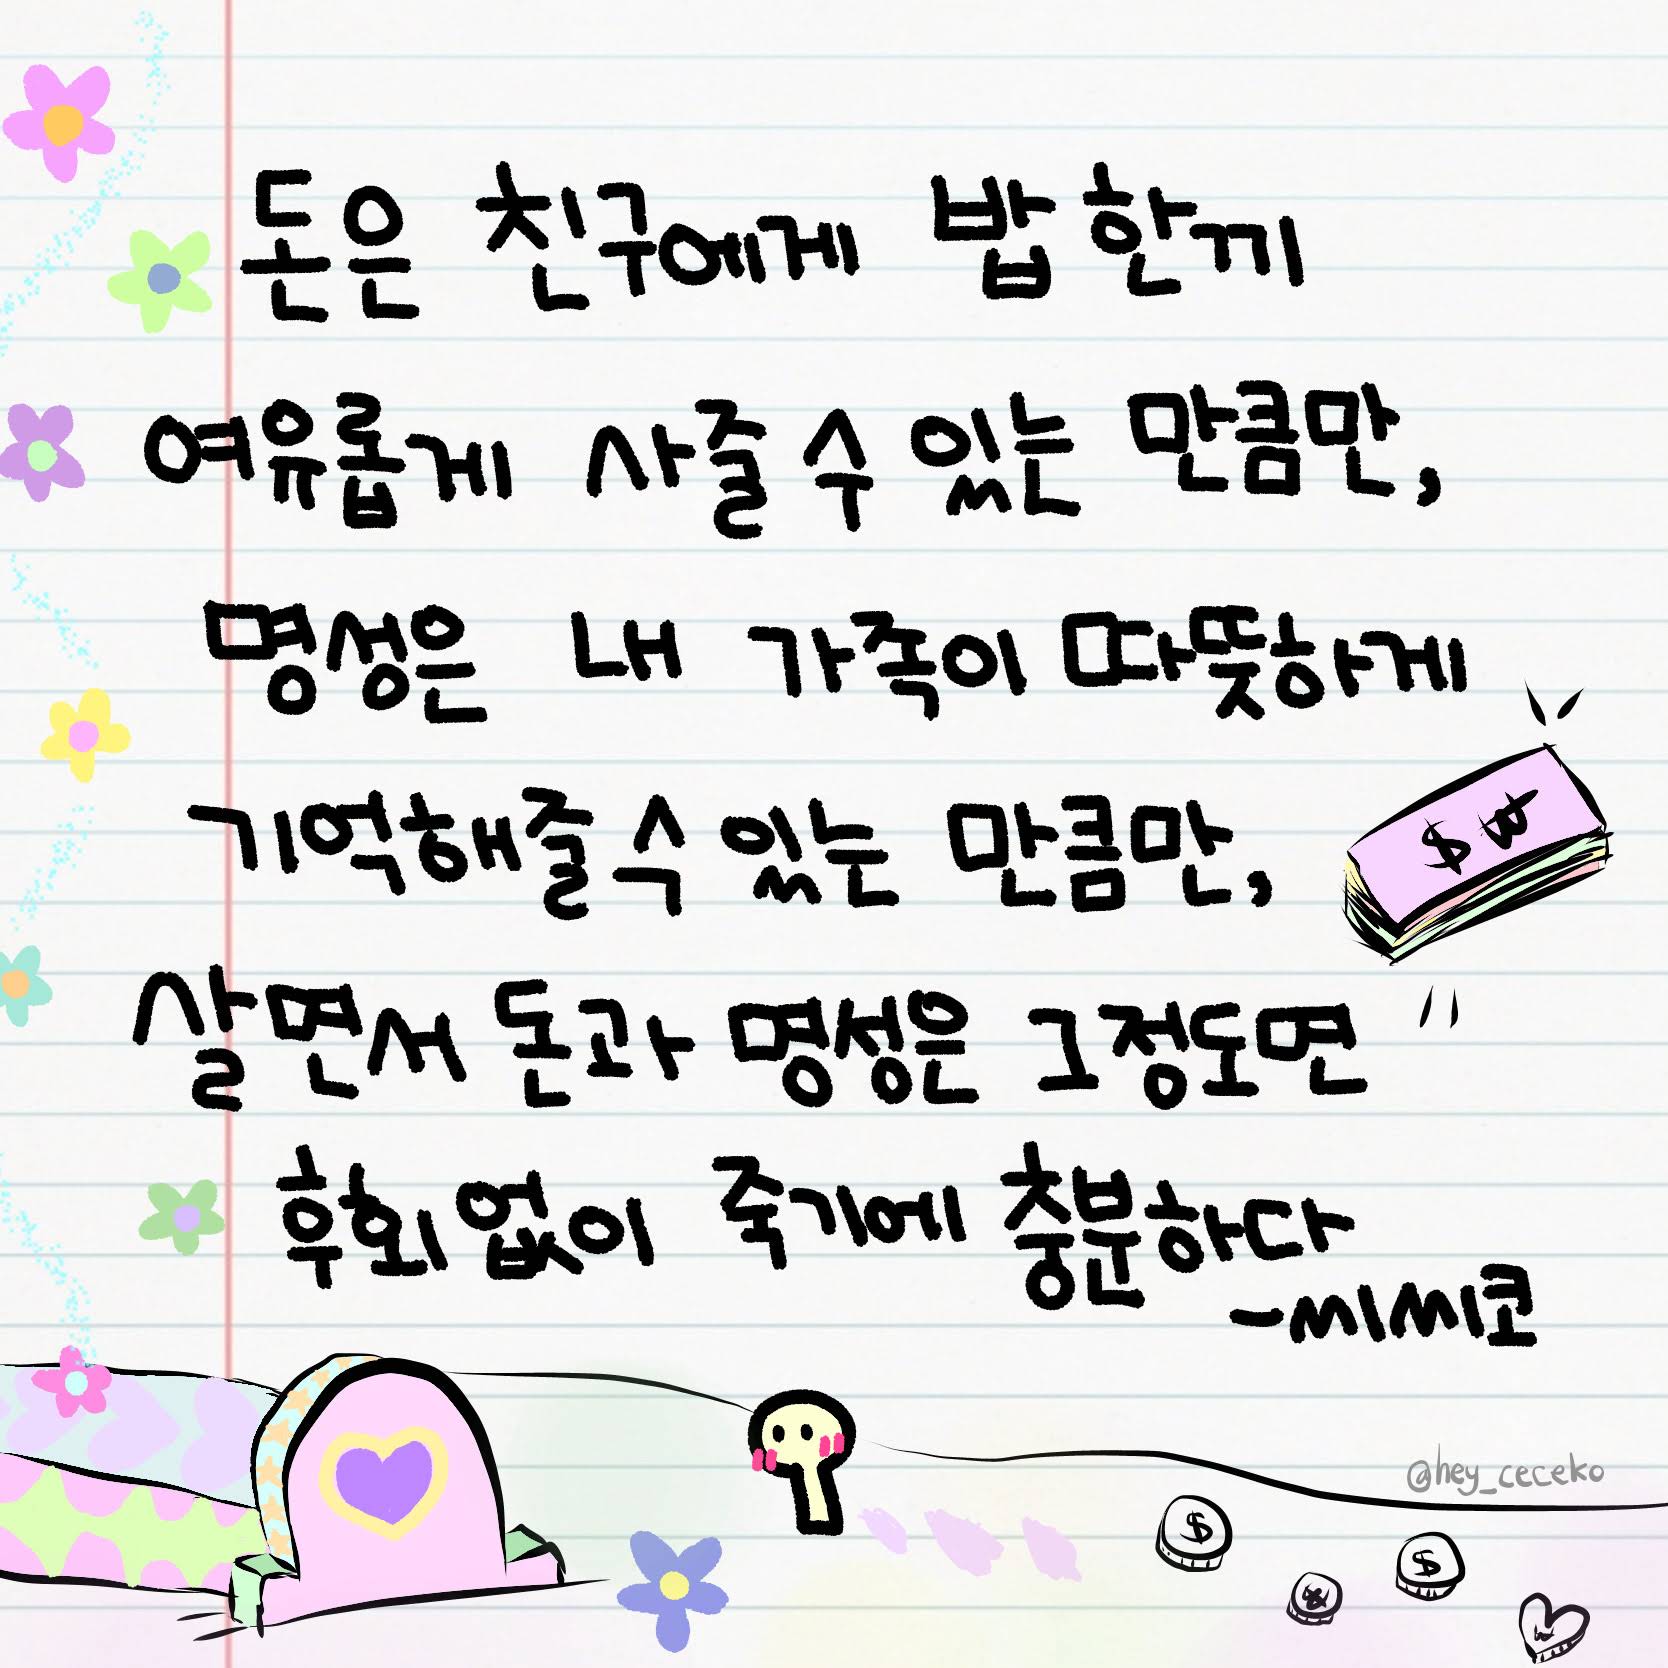 돈은 친구에게 밥 한끼
여유롭게 사줄 수 있는 만큼만,
명성은 내 가족이 따뜻하게
기억해줄 수 있는 만큼만,
살면서 돈과 명성은 그정도면
후회 없이 죽기에 충분하다
-씨씨코
$ ₩
@hey_ceceko
$
$
₩
₩